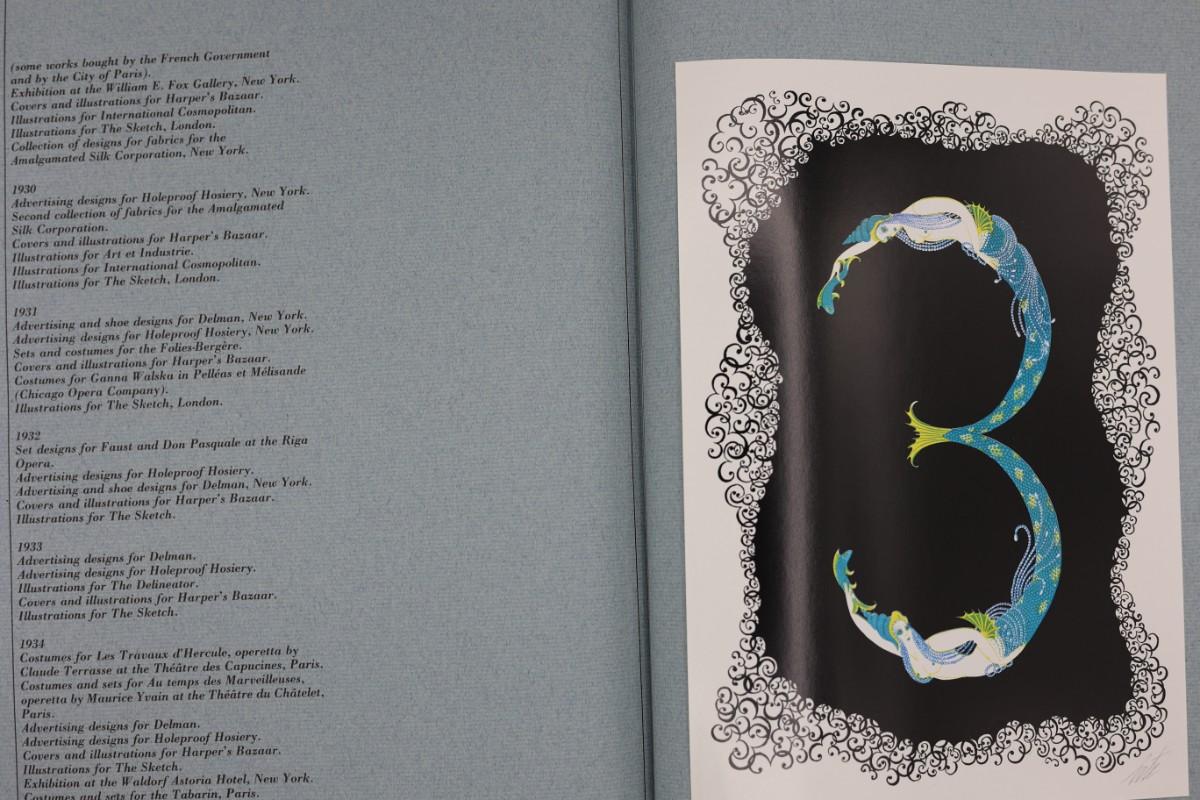 (some works bought by the French Government
and by the City of Paris).
Exhibition at the William E. Fox Gallery, New York.
Covers and illustrations for Harper's Bazaar.
Illustrations for International Cosmopolitan.
Illustrations for The Sketch, London.
Collection of designs for fabrics for the
Amalgamated Silk Corporation, New York.
1930
Advertising designs for Holeproof Hosiery, New York.
Second collection of fabrics for the Amalgamated
Silk Corporation.
Covers and illustrations for Harper's Bazaar.
Illustrations for Art et Industrie.
Illustrations for International Cosmopolitan.
Illustrations for The Sketch, London.
1931
Advertising and shoe designs for Delman, New York.
Advertising designs for Holeproof Hosiery, New York.
Sets and costumes for the Folies-Bergère.
Covers and illustrations for Harper's Bazaar.
Costumes for Ganna Walska in Pelléas et Mélisande
(Chicago Opera Company).
Illustrations for The Sketch, London.
1932
Set designs for Faust and Don Pasquale at the Riga
Opera.
Advertising designs for Holeproof Hosiery.
Advertising and shoe designs for Delman, New York.
Covers and illustrations for Harper's Bazaar.
Illustrations for The Sketch.
1933
Advertising designs for Delman.
Advertising designs for Holeproof Hosiery.
Illustrations for The Delineator.
Covers and illustrations for Harper's Bazaar.
Illustrations for The Sketch.
1934
Costumes for Les Travaux d'Hercule, operetta by
Claude Terrasse at the Théâtre des Capucines, Paris.
Costumes and sets for Au temps des Merveilleuses,
operetta by Maurice Yvain at the Théâtre du Châtelet,
Paris.
Advertising designs for Delman.
Advertising designs for Holeproof Hosiery.
Covers and illustrations for Harper's Bazaar.
Illustrations for The Sketch.
Exhibition at the Waldorf Astoria Hotel, New York.
Costumes and sets for the Tabarin, Paris.
3